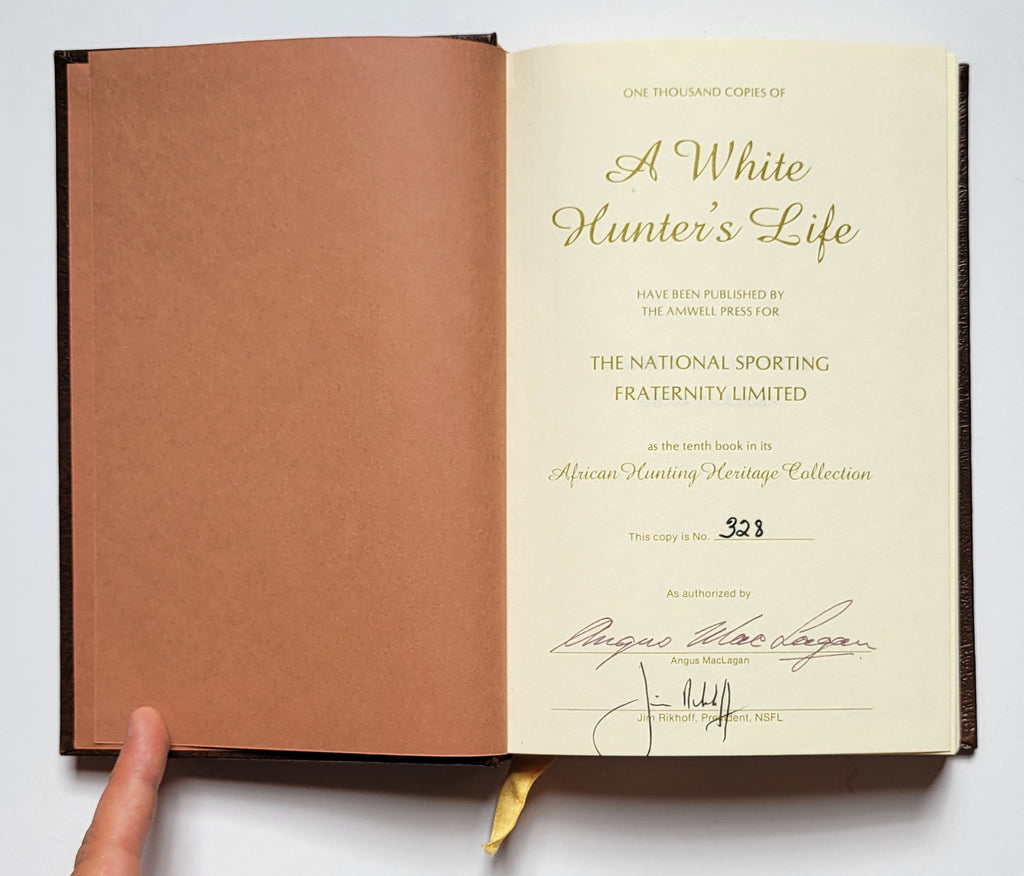 ONE THOUSAND COPIES OF
A White
Hunter's Life
HAVE BEEN PUBLISHED BY
THE AMWELL PRESS FOR
THE NATIONAL SPORTING
FRATERNITY LIMITED
as the tenth book in its
African Hunting Heritage Collection
This copy is No. 328
As authorized by
Angus MacLagan
Angus MacLagan
Jim Rikhoff
Jim Rikhoff, President, NSFL